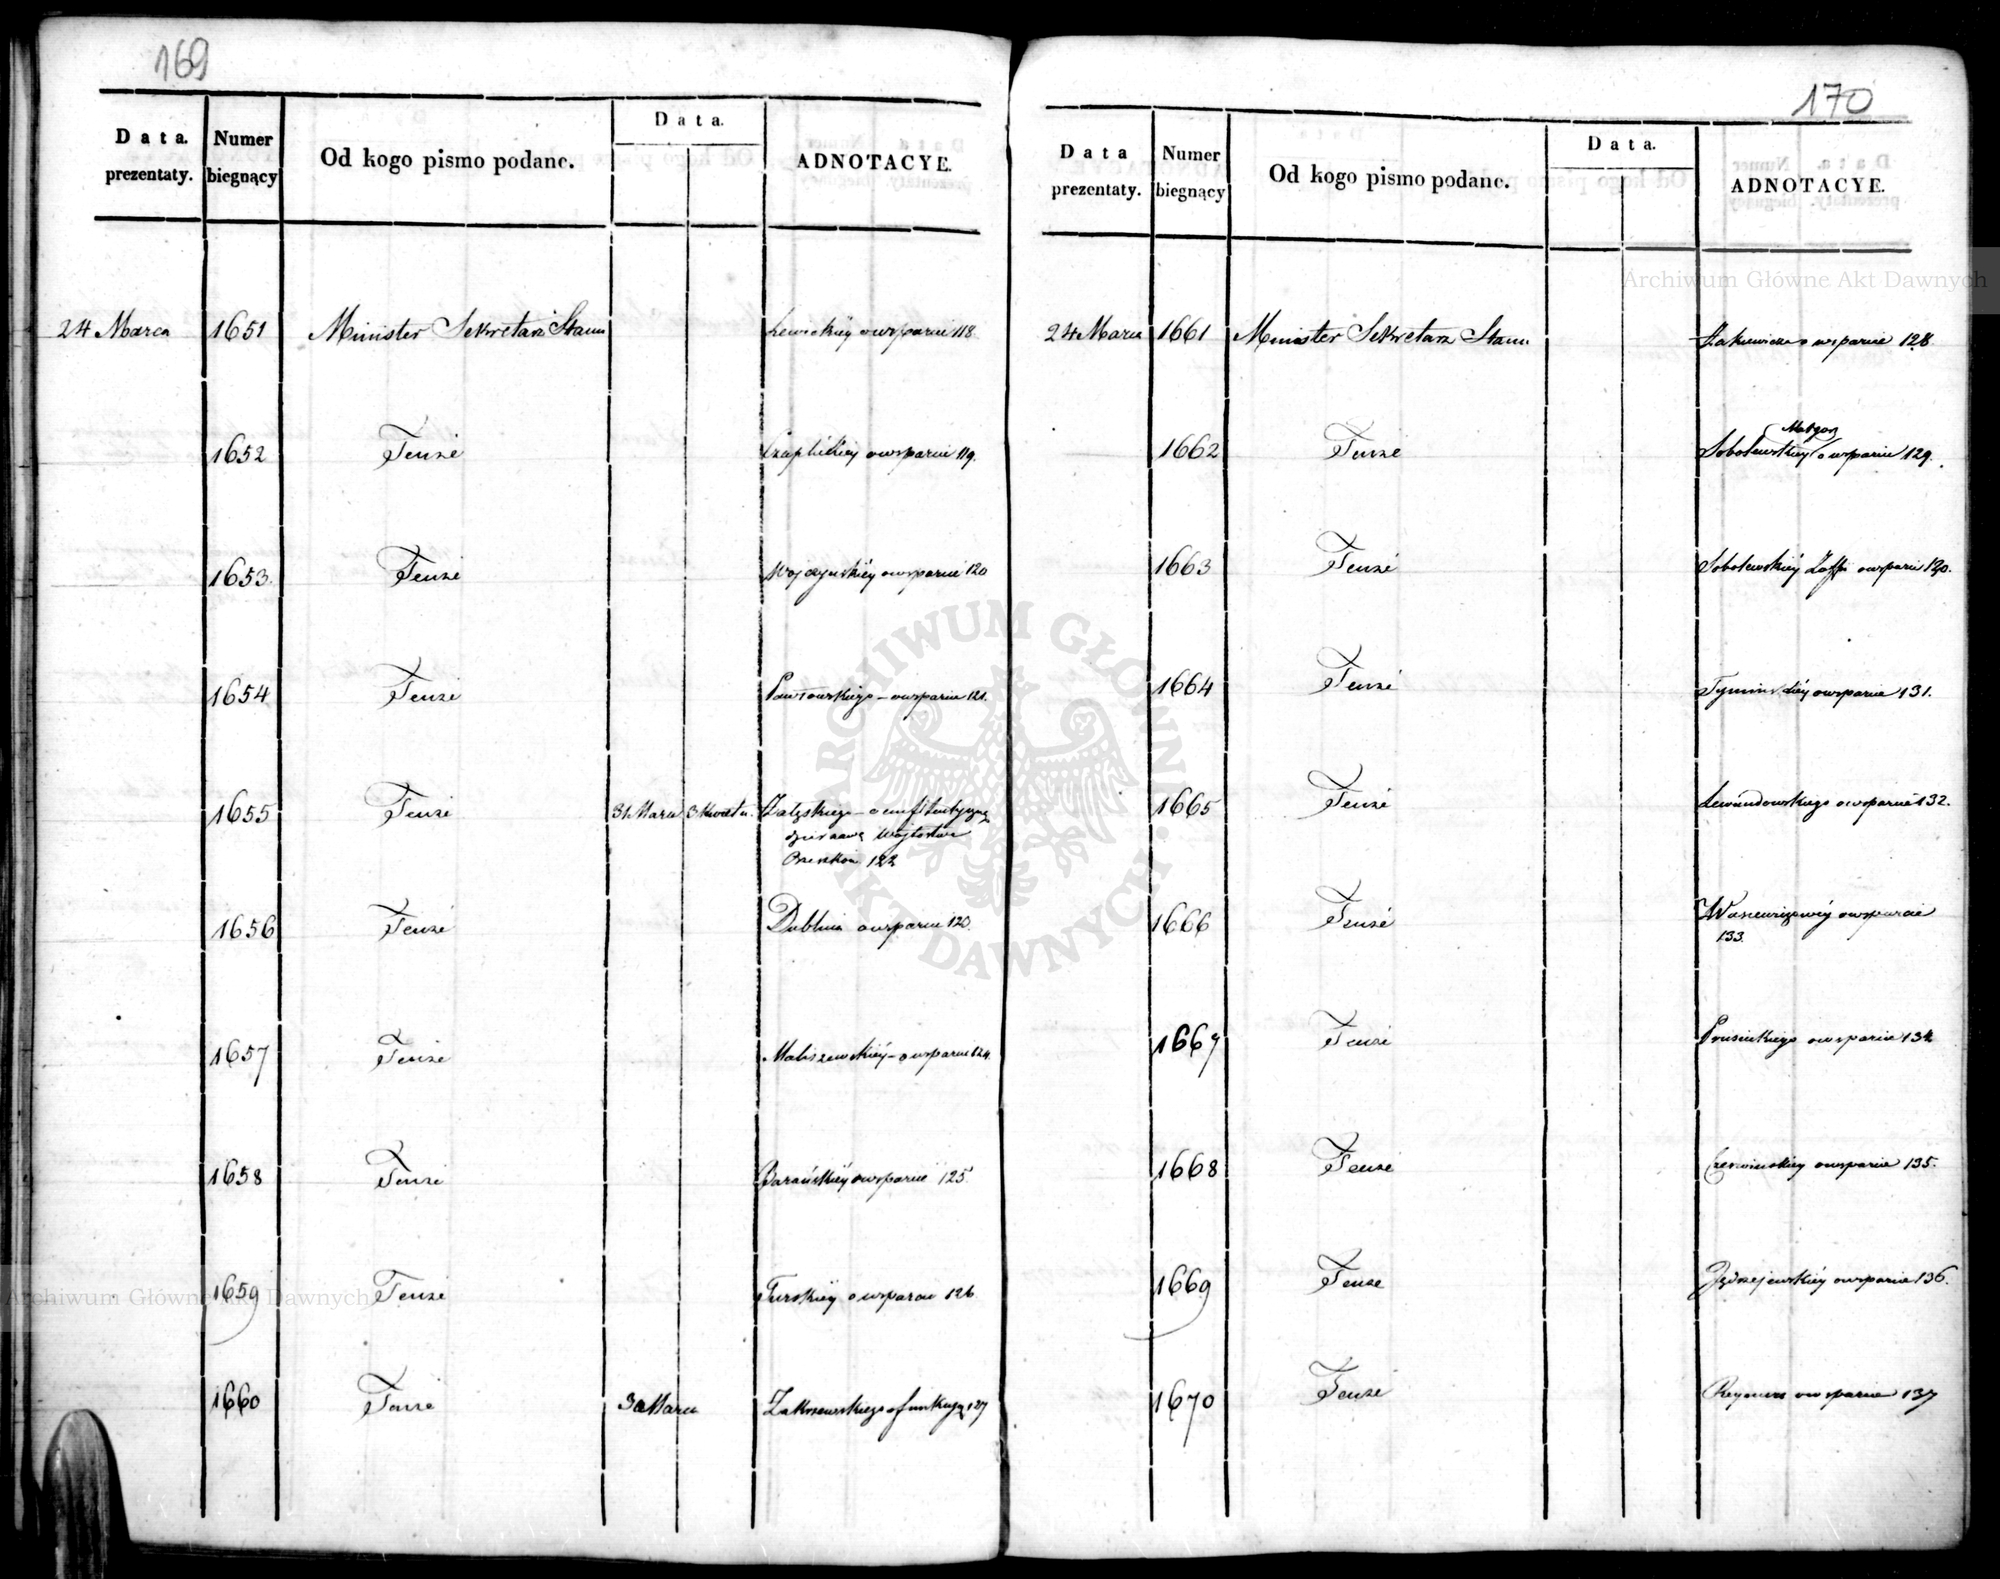 169
Data. prezentaty. Numer biegnący Od kogo pismo podane. Data. ADNOTACYE.
24 Marca 1651 Minister Sekretarz Stanu Lewickiéy o wsparcie 118
1652 Tenże Czaplickiey o wsparcie 119.
1653. Tenże Wojczyńskiéy o wsparcie 120
1654 Tenże Pawłowskiego – o wsparcie 121.
1655 Tenże 31 Marca 3 Kwietn. Załęskiego – o
dzierżawę Wójtostwa
122
1656 Tenże Dublina o wsparcie 123.
1657 Tenże Maliszewskiéy – o wsparcie 124.
1658 Tenże Barańskiéy o wsparcie 125.
1659 Tenże Turskiéy o wsparcie 126
1660 Tenże Marca Zakrzewskiego o funkcyą 127
170
Data prezentaty. Numer biegnący Od kogo pismo podane. Data. ADNOTACYE.
24 Marca 1661 Minister Sekretarz Stanu o wsparcie 128
Małgorz
1662 Tenże Sobolewskiéy o wsparcie 129.
1663 Tenże Sobolewskiéy Zoffi o wsparcie 130.
1664 Tenże Tymińskiéy o wsparcie 131.
1665 Tenże Lewandowskiego o wsparcie 132.
1666 Tenże o wsparcie
133.
1667 Tenże Prusińskiego o wsparcie 134
1668 Tenże Czerwińskiey o wsparcie 135.
1669 Tenże Jędrzejewskiéy o wsparcie 136.
1670 Tenże o wsparcie 137
Archiwum Główne Akt Dawnych
ARCHIWUM GŁÓWNE AKT DAWNYCH
Archiwum Główne Akt Dawnych